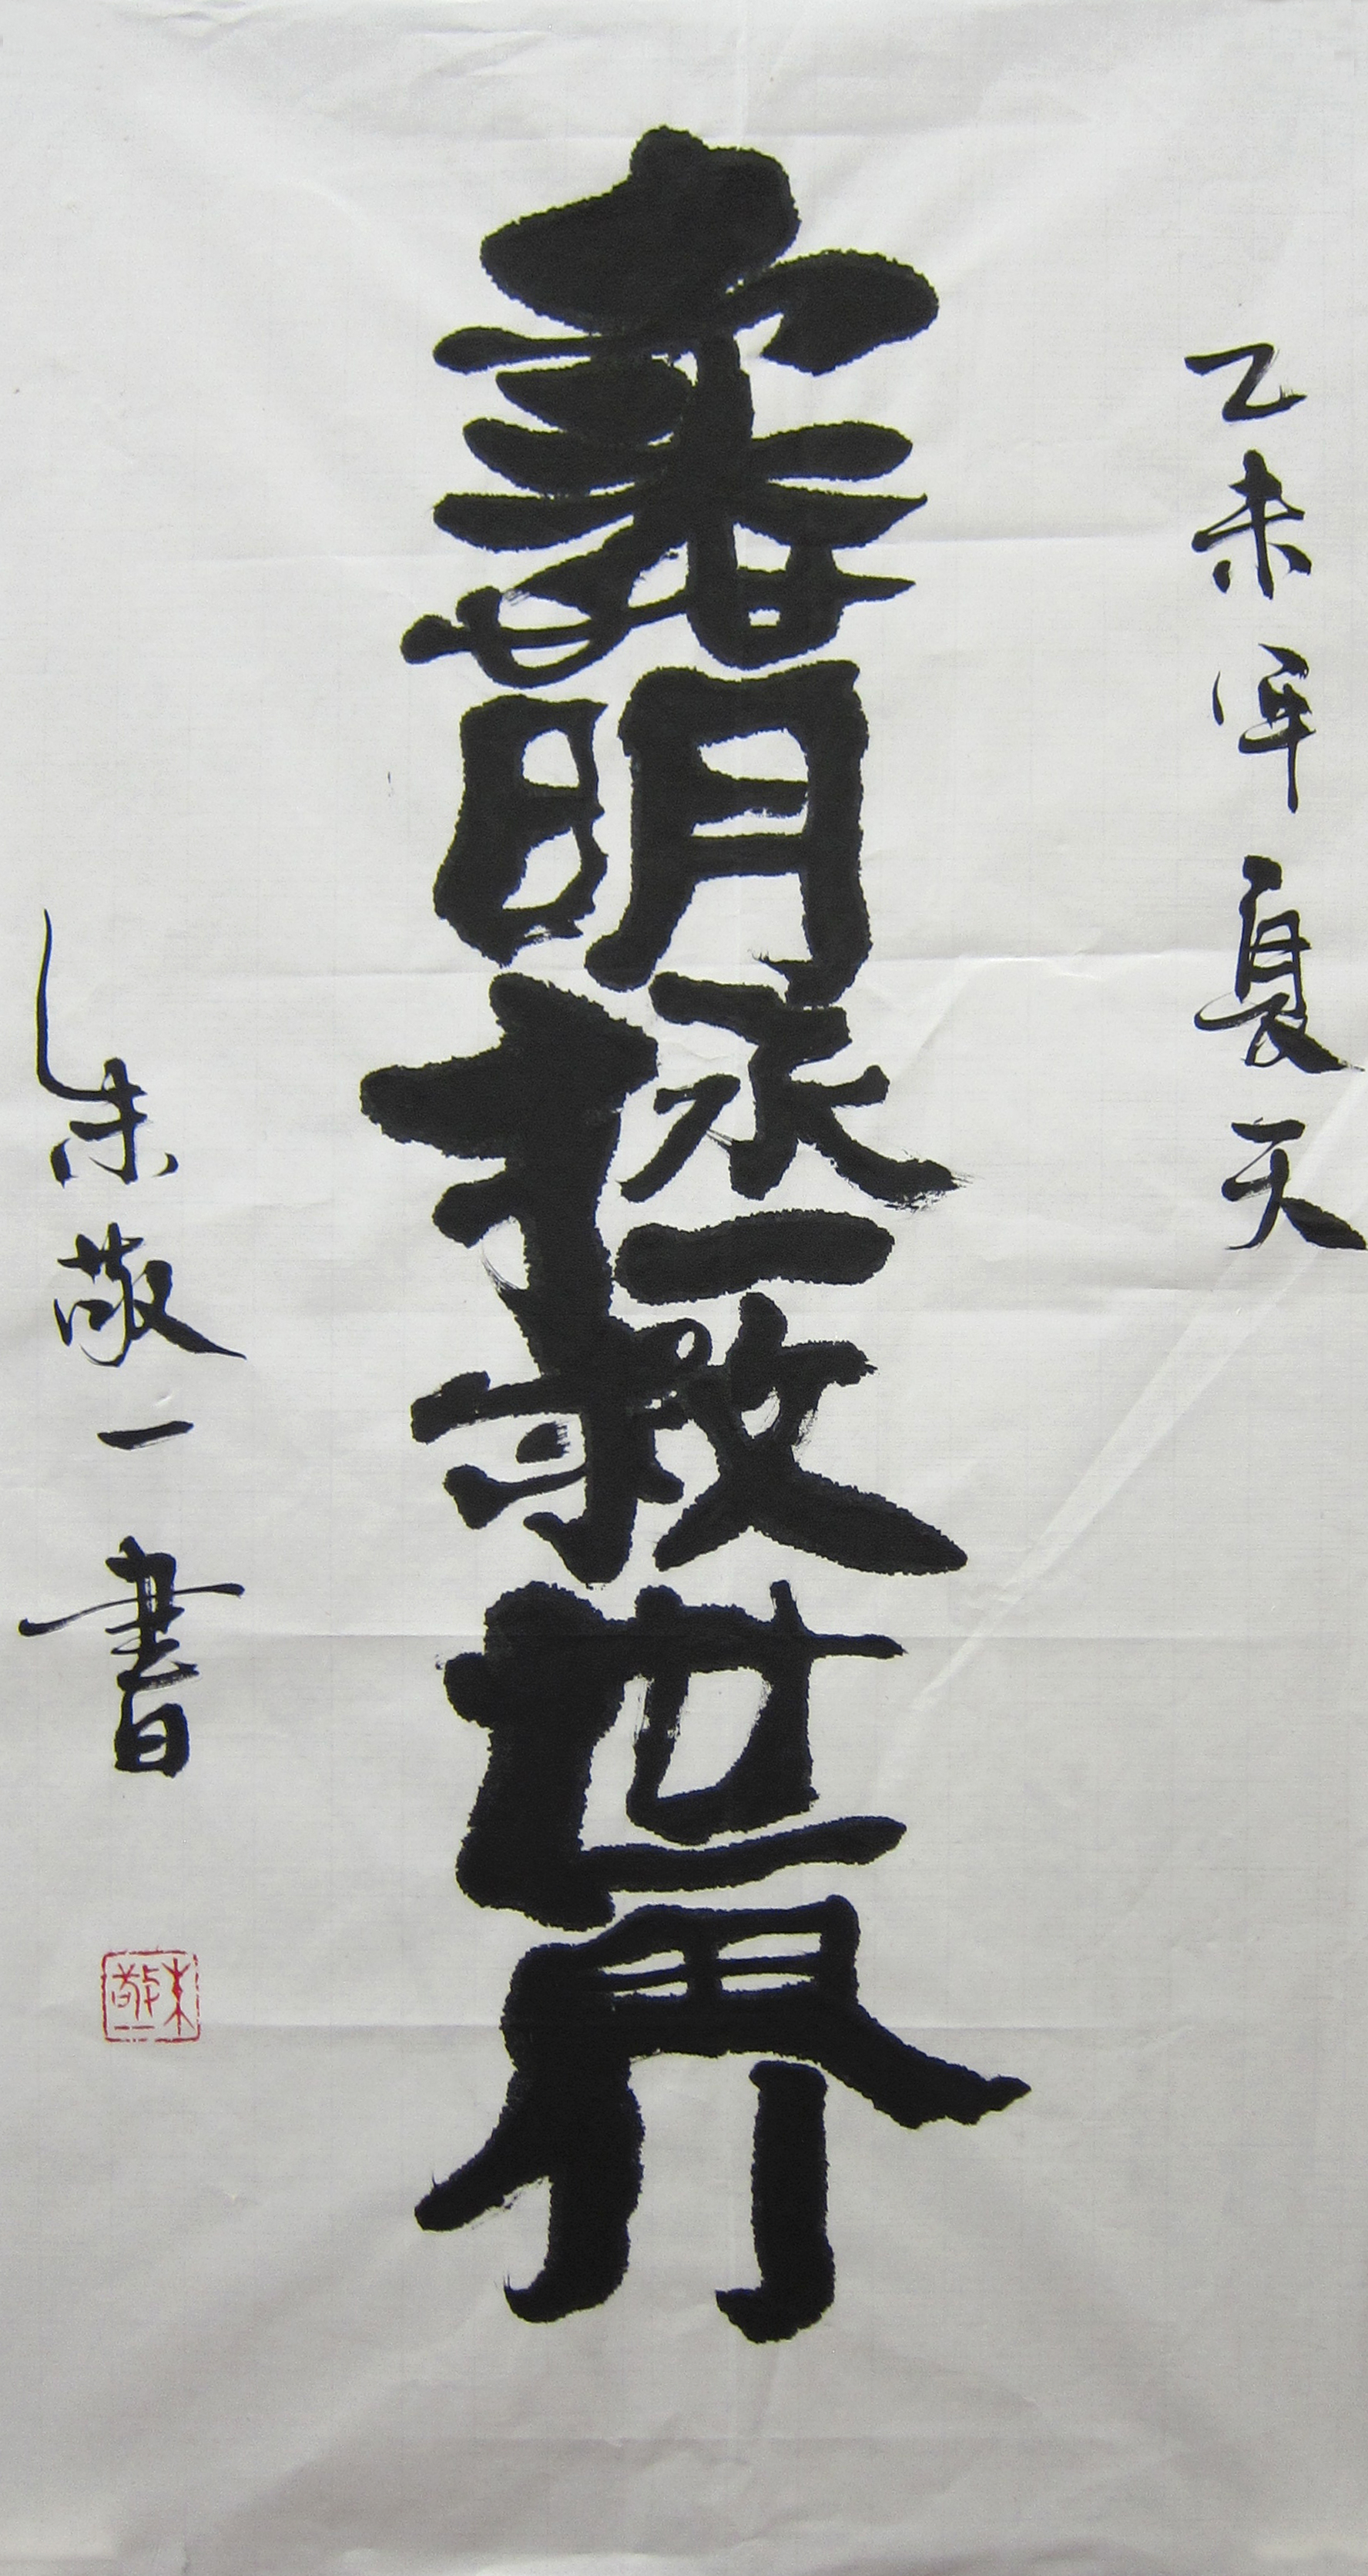 乙未年夏天
明拯救世界
朱敬一書
朱敬一